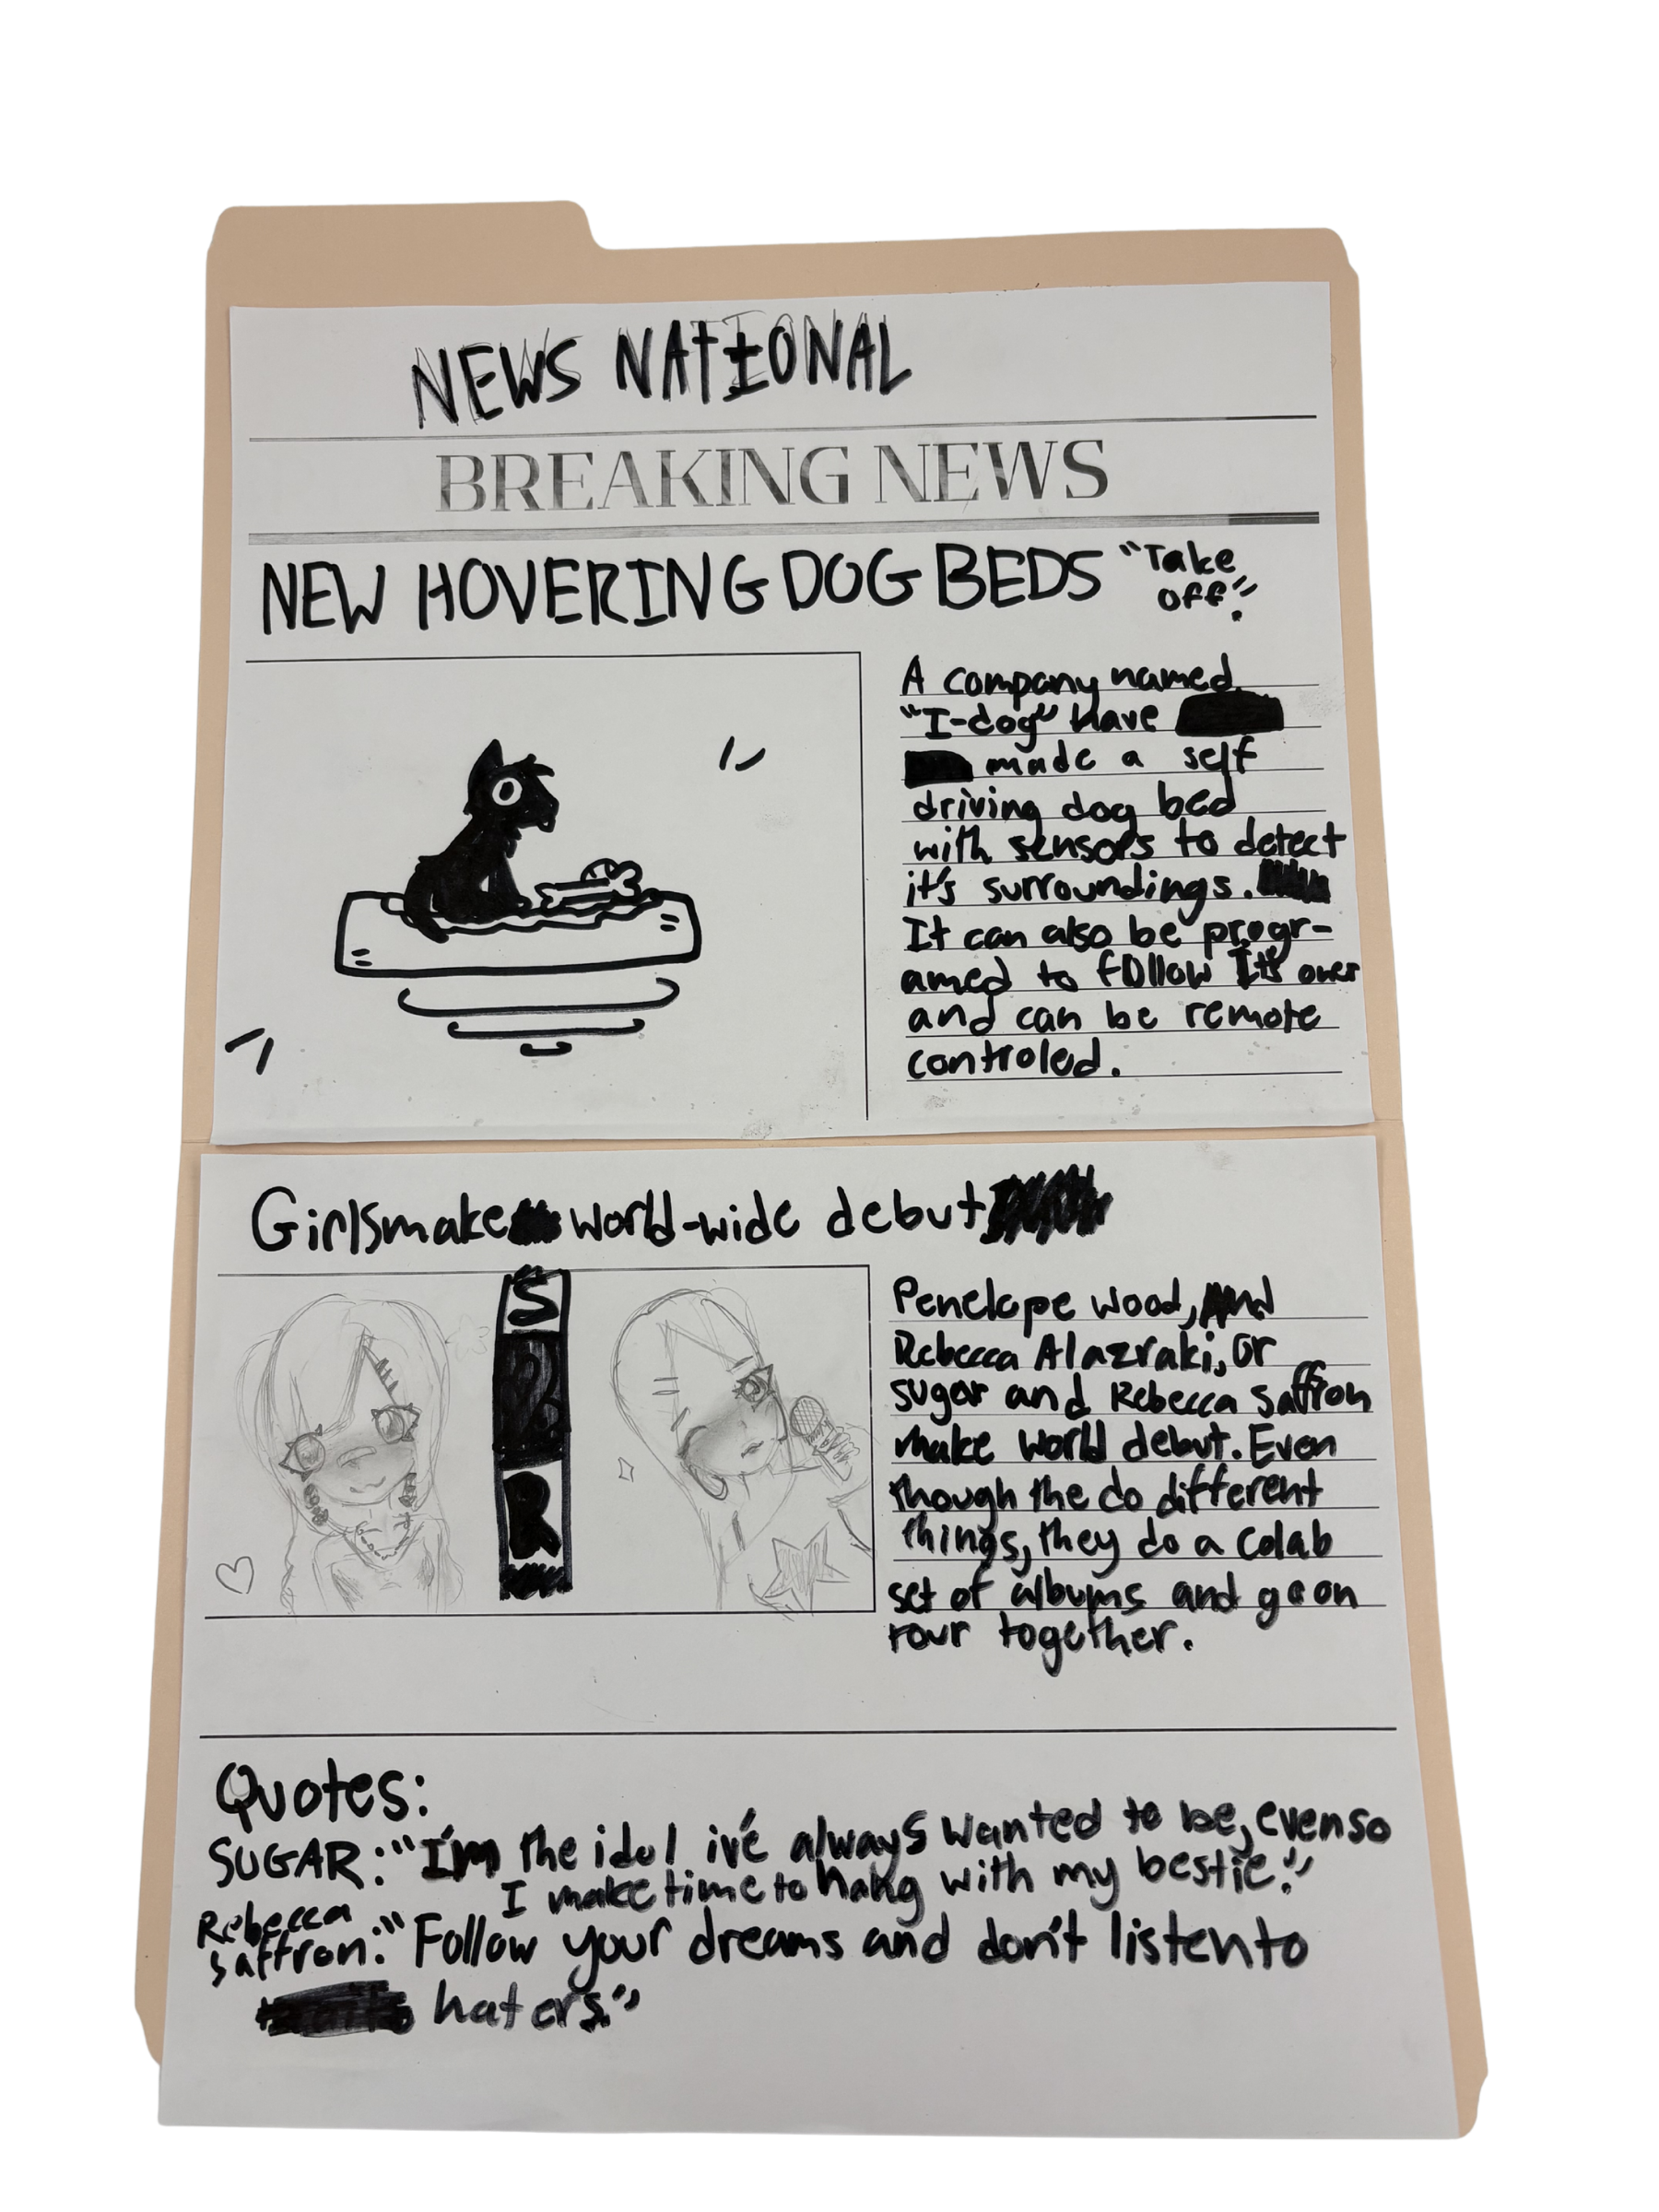 NEWS NATIONAL
BREAKING NEWS
NEW HOVERING DOG BEDS "Take
off".
A company named
"I-dog" have
made a self
driving dog bed
with sensors to detect
it's surroundings.
It can also be progr-
amed to follow It's owner
and can be remote
controled.
Girlsmake world-wide debut
S
&
R
Penelope Wood, and
Rebecca Alazraki, or
sugar and Rebecca Saffron
make world debut. Even
though the do different
things, they do a colab
set of albums and go on
tour together.
Quotes:
SUGAR: "I'm the idol iv'e always wanted to be, even so
I make time to hang with my bestie."
Rebecca
Saffron: "Follow your dreams and don't listen to
haters."